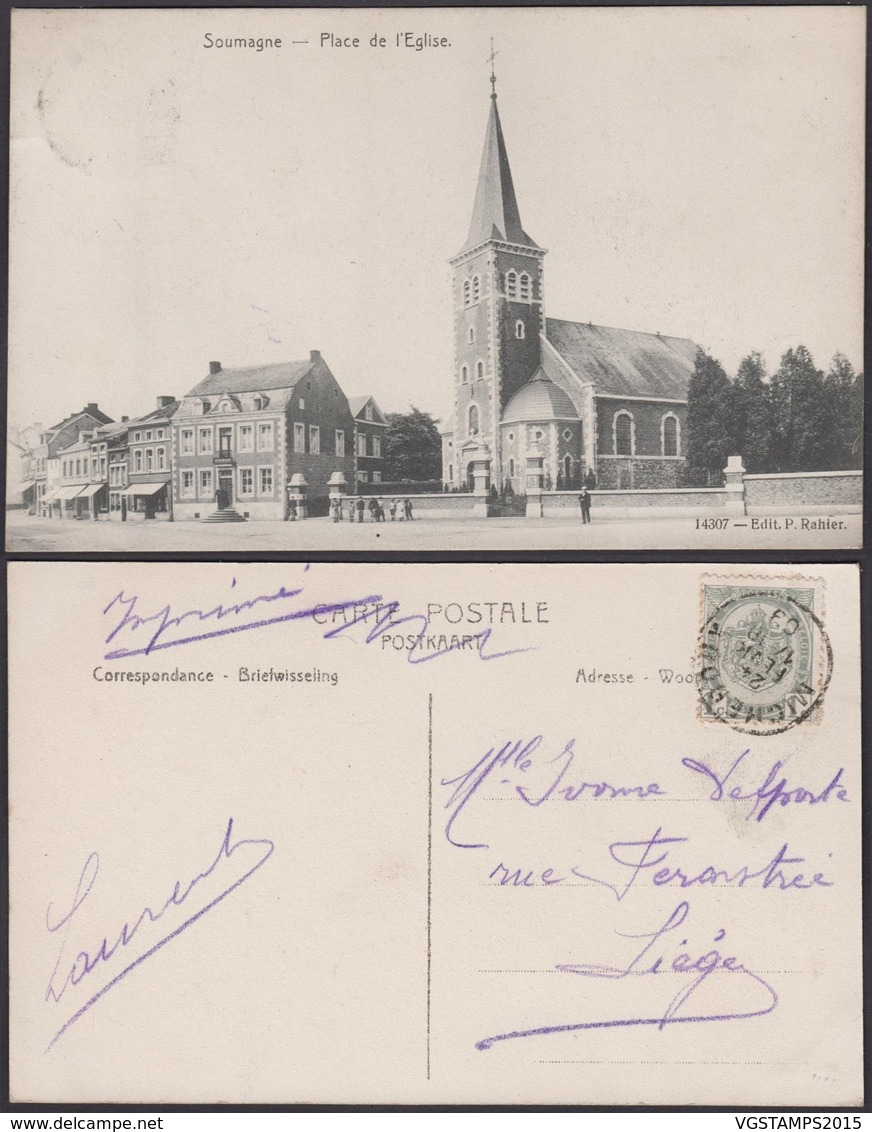 Soumagne — Place de l'Eglise.
14307 — Edit. P. Rahier.
Imprimé
CARTE POSTALE
POSTKAART
Correspondance - Briefwisseling
Adresse - Woo
MICHEROUX
24
FEVR
09
Mlle Ivonne Delporte
rue Feronstrée
Liége
Laurent
VGSTAMPS2015